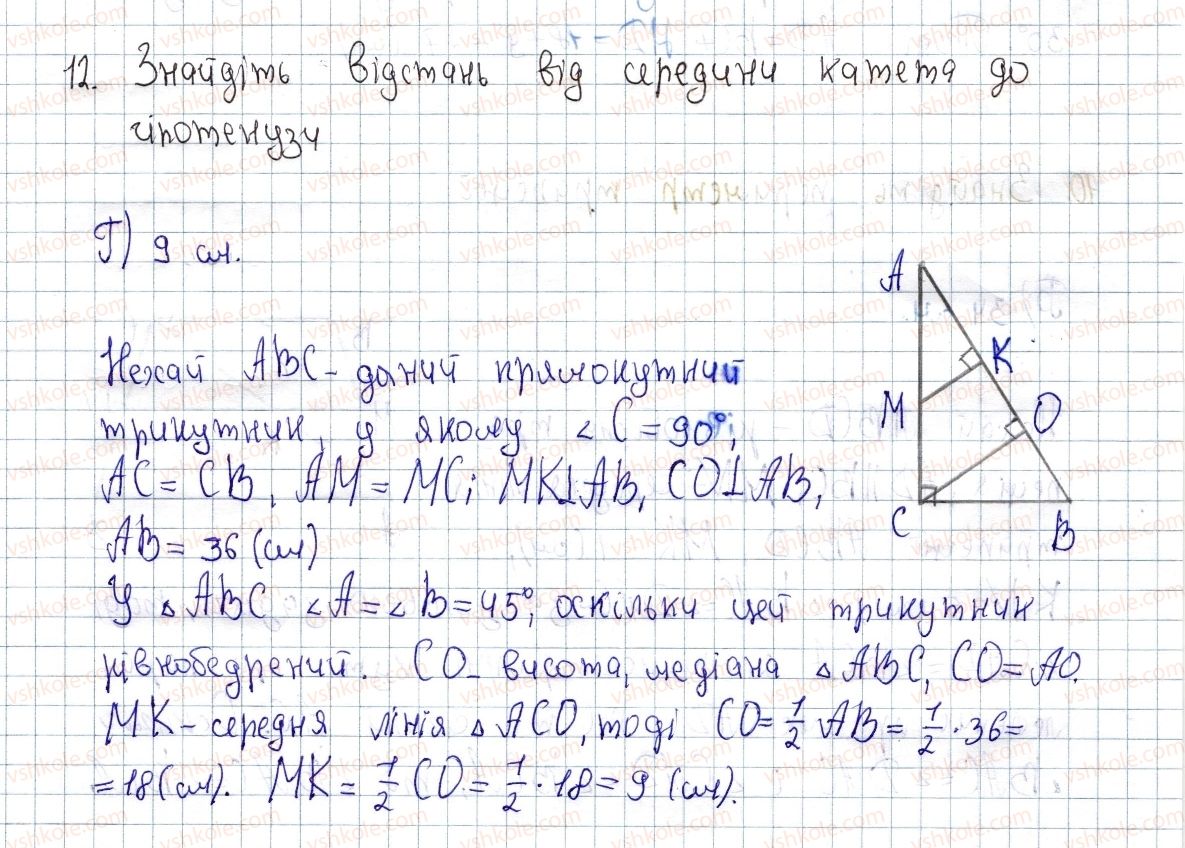 12. Знайдіть відстань від середини катета до
гіпотенузи
Г) 9 см.
Нехай ABC - даний прямокутний
трикутник, у якому ∠C = 90°,
AC = CB, AM = MC; MK⊥AB, CO⊥AB;
AB = 36 (см)
У △ABC ∠A = ∠B = 45°, оскільки цей трикутник
рівнобедрений. CO - висота, медіана △ABC, CO = AO.
MK - середня лінія △ACO, тоді CO = 1/2 AB = 1/2 · 36 =
= 18 (см). MK = 1/2 CO = 1/2 · 18 = 9 (см).
A
K
M
O
C
B
vshkole.com